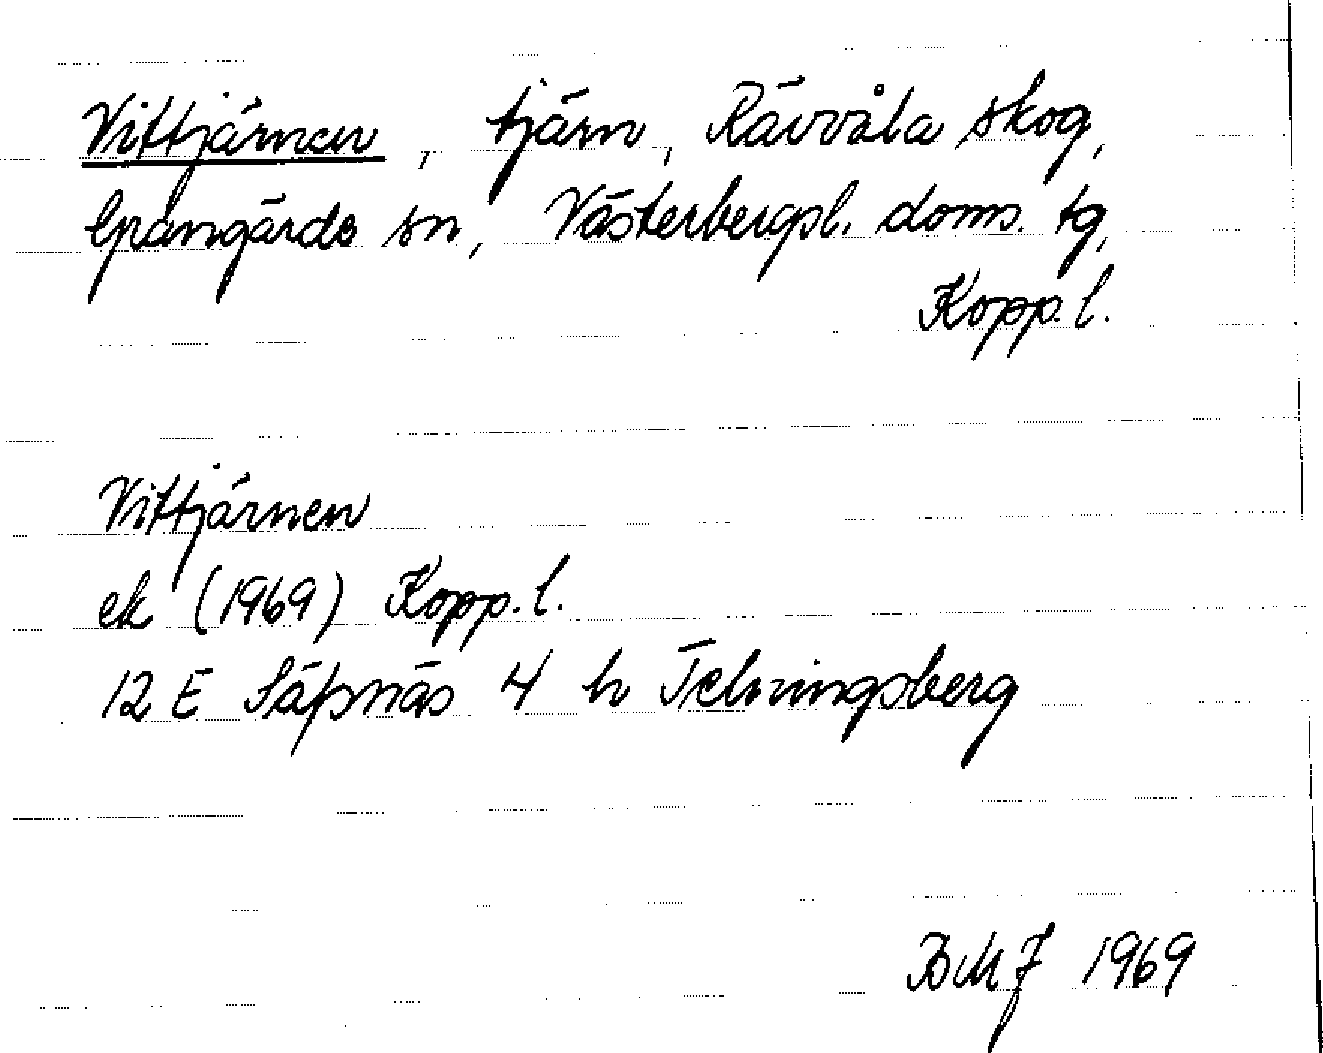 Vittjärnen, tjärn, Rävvåla skog,
Grangärde sn, Västerbergsl. doms. tg,
Kopp. l.
Vittjärnen
ek (1969) Kopp. l.
12 E Säfsnäs 4 h Tehningsberg
BMJ 1969